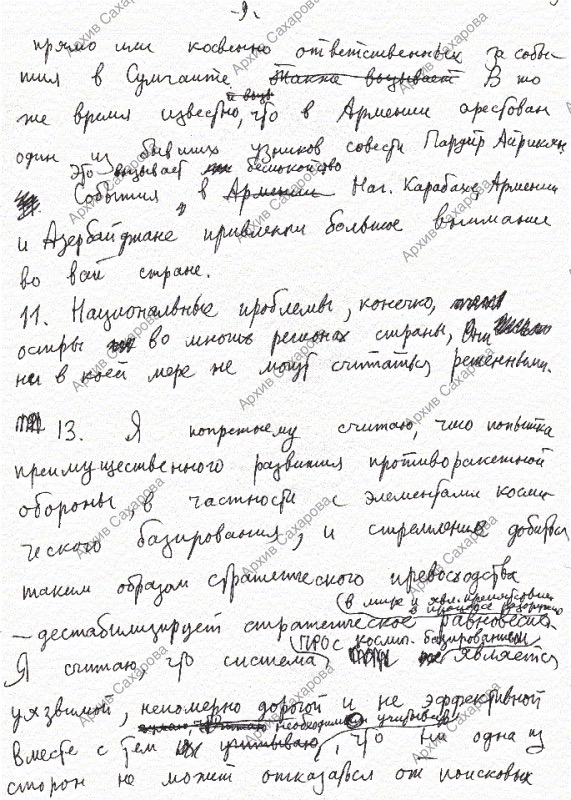 -9.
прямо или косвенно ответственных за собы-
тия в Сумгаите. Также вызывает В то
и выз
же время известно, что в Армении арестован
один из бывших узников совести Паруйр Айрикян.
Это вызывает беспокойство
События в Армении Наг. Карабахе, Армении
и Азербайджане привлекли большое внимание
во всей стране.
11. Национальные проблемы, конечно,
остры во многих регионах страны, Они
ни в коей мере не могут считаться решенными.
13. Я попрежнему считаю, что попытка
преимущественного развития противоракетной
обороны, в частности с элементами косми-
ческого базирования, и стремление добиться
таким образом стратегического превосходства
(в мире и явл. препятствием
в процессе разоружения
— дестабилизирует стратегическое равновесие.
ПРО с космич. базированием
Я считаю, что система является
уязвимой, непомерно дорогой и не эффективной
необходимо учитывать
Вместе с тем учитываю, что ни одна из
сторон не может отказаться от поисковых
Архив Сахарова